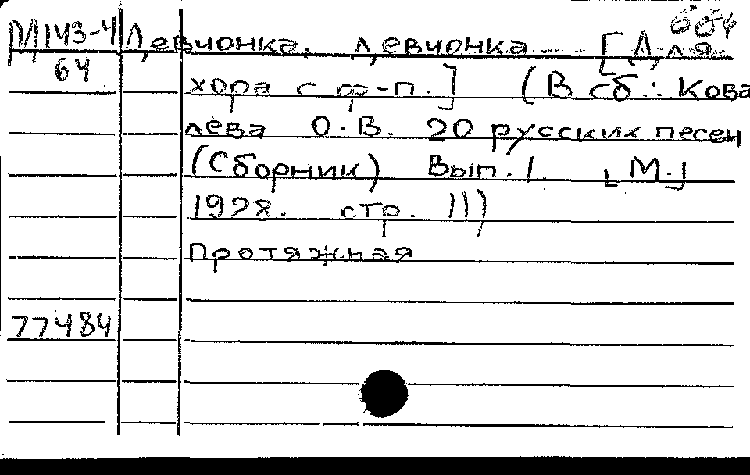 М143-4 Девчонка, девчонка [Для
64
хора с ф-п.] (В сб.: Кова
лева О.В. 20 русских песен
(Сборник) Вып. 1. [М.]
1928. стр. 11)
Протяжная
77484